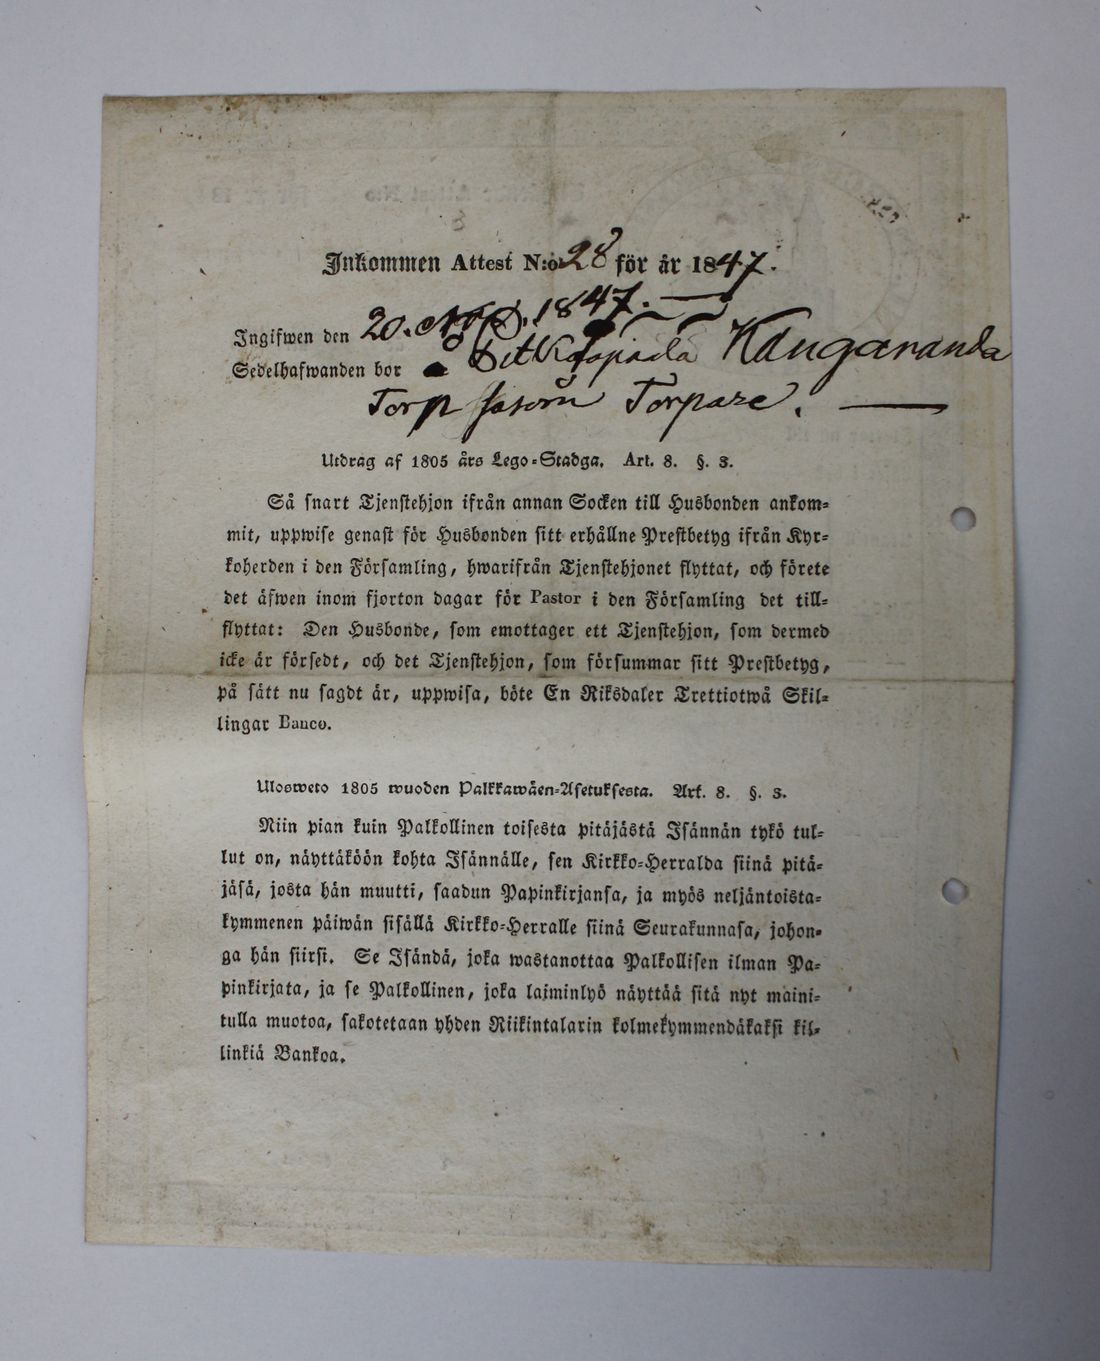 Inkommen Attest N:o 28 för år 1847.
Ingifwen den 20. 1847.
Sedelhafwanden bor å Kangaranda
Torp såsom Torpare.
Utdrag af 1805 års Lego-Stadga. Art. 8. §. 3.
Så snart Tjenstehjon ifrån annan Socken till Husbonden ankom-
mit, uppwise genast för Husbonden sitt erhållne Prestbetyg ifrån Kyr-
koherden i den Församling, hwarifrån Tjenstehjonet flyttat, och förete
det äfwen inom fjorton dagar för Pastor i den Församling det till-
flyttat: Den Husbonde, som emottager ett Tjenstehjon, som dermed
icke är försedt, och det Tjenstehjon, som försummar sitt Prestbetyg,
på sätt nu sagdt är, uppwisa, böte En Riksdaler Trettiotwå Skil-
lingar Banco.
Ulosweto 1805 wuoden Palkkawäen-Asetuksesta. Art. 8. §. 3.
Niin pian kuin Palkollinen toisesta pitäjästä Isännän tykö tul-
lut on, näyttäköön kohta Isännälle, sen Kirkko-Herralda siinä pitä-
jäsä, josta hän muutti, saadun Papinkirjansa, ja myös neljäntoista-
kymmenen päiwän sisällä Kirkko-Herralle siinä Seurakunnasa, johon-
ga hän siirsi. Se Isändä, joka wastanottaa Palkollisen ilman Pa-
pinkirjata, ja se Palkollinen, joka laiminlyö näyttää sitä nyt maini-
tulla muotoa, sakotetaan yhden Riikintalarin kolmekymmendäkaksi kil-
linkiä Bankoa.